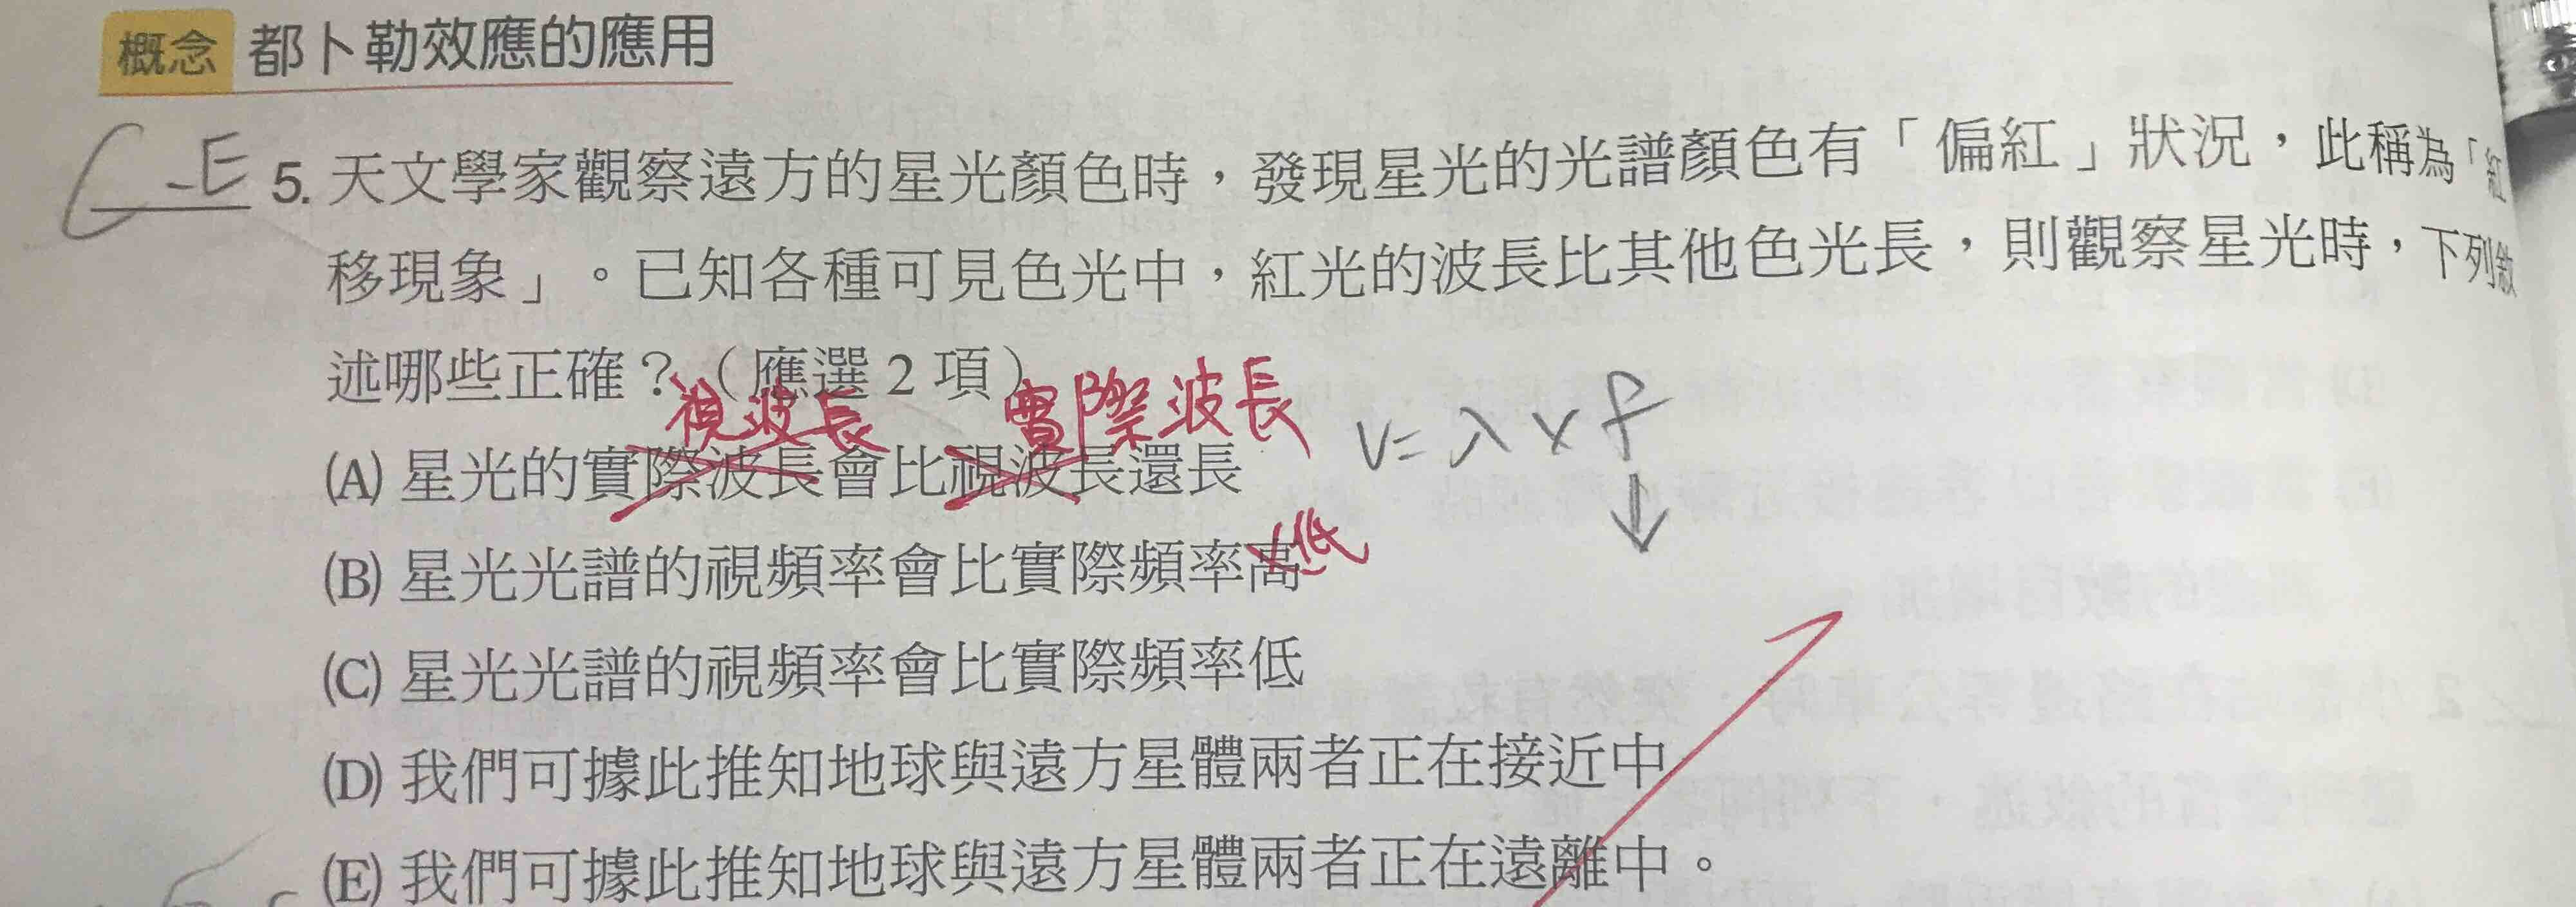 概念 都卜勒效應的應用
C E 5. 天文學家觀察遠方的星光顏色時，發現星光的光譜顏色有「偏紅」狀況，此稱為「紅
移現象」。已知各種可見色光中，紅光的波長比其他色光長，則觀察星光時，下列敘
述哪些正確？（應選 2 項）
視波長 實際波長
V=λxf
(A) 星光的實際波長會比視波長還長
低
(B) 星光光譜的視頻率會比實際頻率高
(C) 星光光譜的視頻率會比實際頻率低
(D) 我們可據此推知地球與遠方星體兩者正在接近中
(E) 我們可據此推知地球與遠方星體兩者正在遠離中。